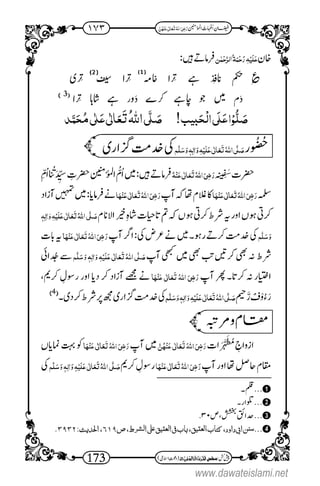 ۱۷۳ فیضانِ امہات المؤمنین رَضِیَ اللہُ تَعَالٰی عَنْہُنَّ
خان عَلَیْہِ رَحْمَۃُ الرَّحْمٰن فرماتے ہیں:
حکم نافذ ہے ترا خامہ(1) ترا سیف(2) تری
دم میں جو چاہے کرے دَور ہے شاہا ترا (3)
صَلُّوْا عَلَی الْحَبِیْب! صَلَّی اللہُ تَعَالٰی عَلٰی مُحَمَّد
حُضُور صَلَّی اللہُ تَعَالٰی عَلَیْہِ وَاٰلِہٖ وَسَلَّم کی خدمت گزاری
حضرتِ سفینہ رَضِیَ اللہُ تَعَالٰی عَنْہُ فرماتے ہیں: میں اُمُّ المؤمنین حضرتِ سَیِّدَتُنا اُمِّ
سلمہ رَضِیَ اللہُ تَعَالٰی عَنْہَا کا غلام تھا کہ آپ رَضِیَ اللہُ تَعَالٰی عَنْہَا نے فرمایا: میں تمہیں آزاد
کرتی ہوں اور یہ شرط کرتی ہوں کہ تم تاحیات شاہِ خیر الانام صَلَّی اللہُ تَعَالٰی عَلَیْہِ وَاٰلِہٖ
وَسَلَّم کی خدمت کرتے رہو۔ میں نے عرض کی: اگر آپ رَضِیَ اللہُ تَعَالٰی عَنْہَا یہ بات
شرط نہ بھی کریں تب بھی میں کبھی آپ صَلَّی اللہُ تَعَالٰی عَلَیْہِ وَاٰلِہٖ وَسَلَّم سے جدائی
اختیار نہ کرتا۔ پھر آپ رَضِیَ اللہُ تَعَالٰی عَنْہَا نے مجھے آزاد کر دیا اور رسولِ کریم،
رَءُوْفٌ رَّحیم صَلَّی اللہُ تَعَالٰی عَلَیْہِ وَاٰلِہٖ وَسَلَّم کی خدمت گزاری مجھ پر شرط کر دی۔(4)
مقام و مرتبہ
ازواجِ مُطَہَّرات رَضِیَ اللہُ تَعَالٰی عَنْہُنَّ میں آپ رَضِیَ اللہُ تَعَالٰی عَنْہَا کو بہت نمایاں
مقام حاصل تھا اور آپ رَضِیَ اللہُ تَعَالٰی عَنْہَا رسولِ کریم صَلَّی اللہُ تَعَالٰی عَلَیْہِ وَاٰلِہٖ وَسَلَّم کی
1...قلم۔
2...تلوار۔
3...حدائقِ بخشش، ص۳۰.
4...سنن ابی داود، کتاب العتیق، باب فی العتیق علی الشرط، ص۶۱۹، الحدیث: ۳۹۳۲.
173
www.dawateislami.net